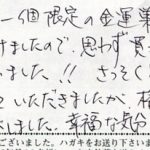 一個限定の金運
けましたので、思わず買
いました、!! さっそく
ていただきましたが、
しました。幸福な気分
ございました。ハガキをお送り下さいま